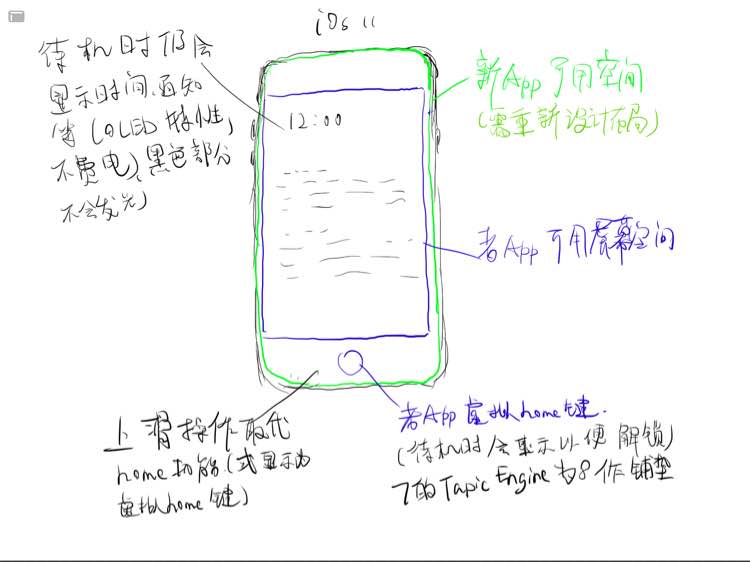 iOS 11
待机时仍会
显示时间、通知
等(OLED特性,
不费电)、黑色部分
不会发光)
12:00
新App可用空间
(需重新设计布局)
老App可用屏幕空间
上滑操作取代
home功能(或显示为
虚拟home键)
老App虚拟home键.
(待机时会显示以便解锁)
7的Tapic Engine为8作铺垫